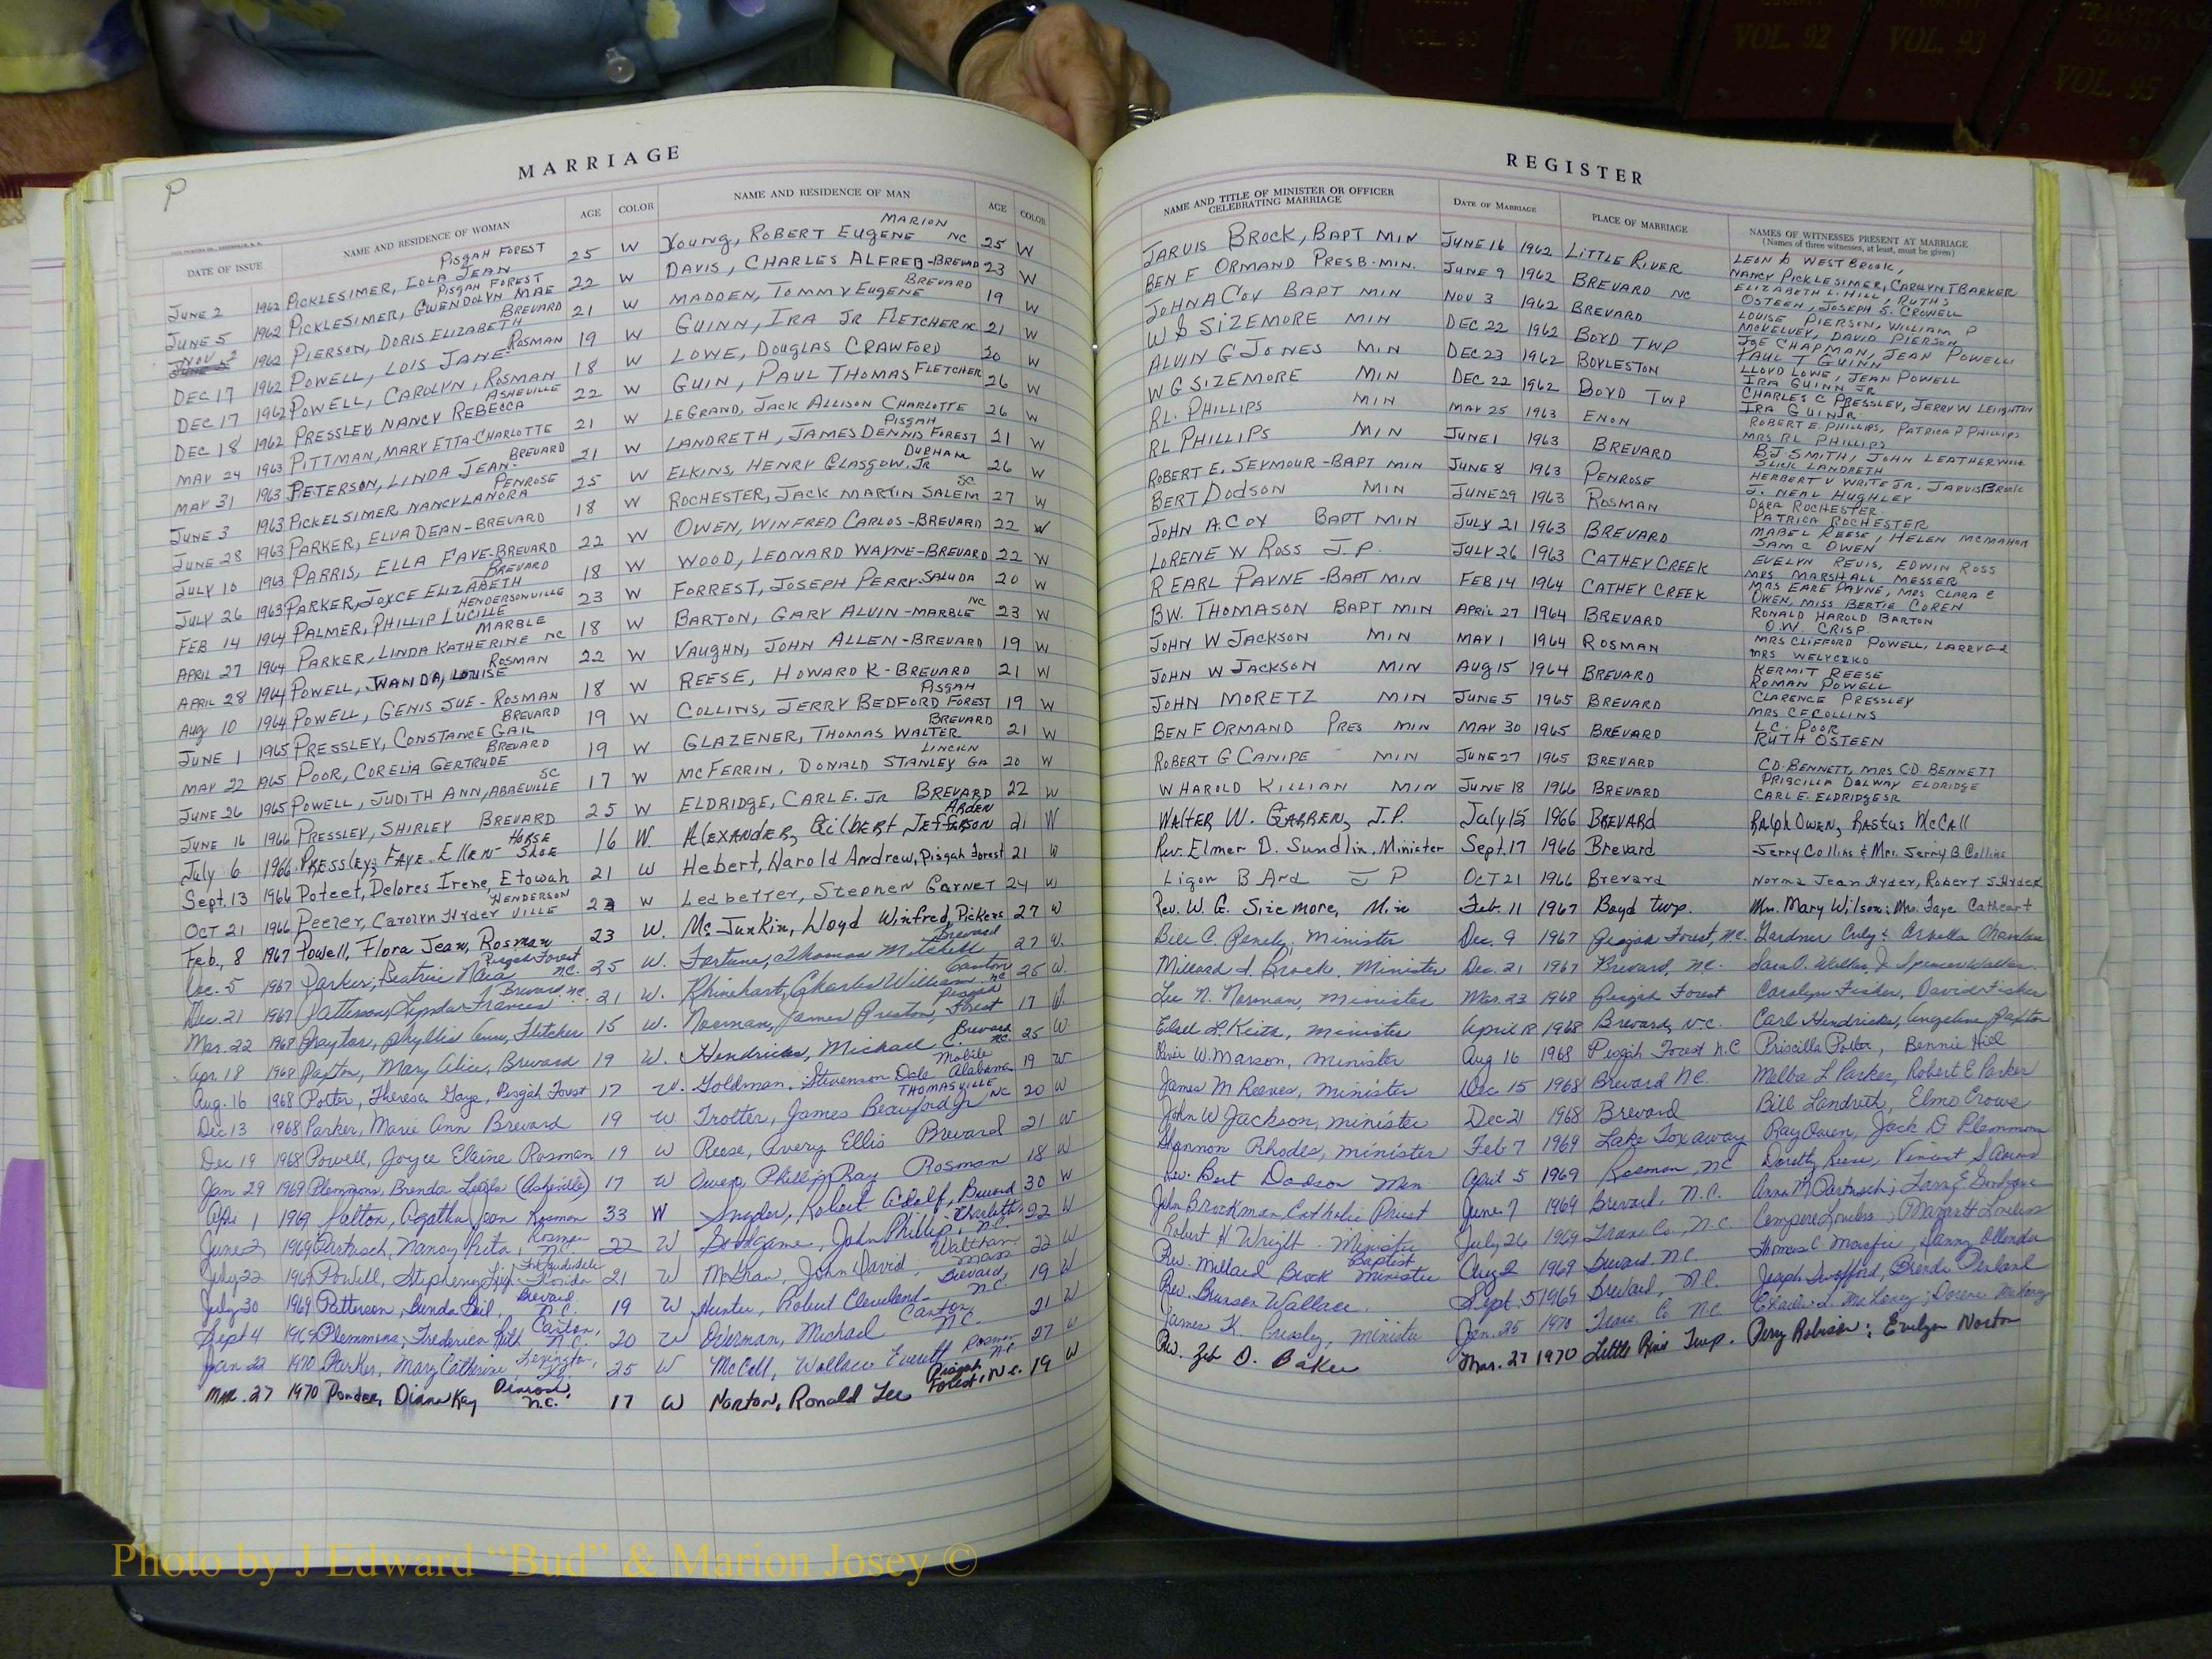 VOL. 92
VOL. 93
TRANSYLVANIA
COUNTY
VOL. 95
P
MARRIAGE
DATE OF ISSUE NAME AND RESIDENCE OF WOMAN AGE COLOR NAME AND RESIDENCE OF MAN AGE COLOR
JUNE 2 1962 PICKLESIMER, IOLA JEAN PISGAH FOREST 25 W YOUNG, ROBERT EUGENE MARION NC 25 W
JUNE 5 1962 PICKLESIMER, GWENDOLYN MAE PISGAH FOREST 22 W DAVIS, CHARLES ALFRED-BREVARD 23 W
NOV 2 1962 PIERSON, DORIS ELIZABETH BREVARD 21 W MADDEN, TOMMY EUGENE BREVARD 19 W
DEC 17 1962 POWELL, LOIS JANE ROSMAN 19 W GUINN, IRA JR FLETCHER NC 21 W
DEC 17 1962 POWELL, CAROLYN, ROSMAN 18 W LOWE, DOUGLAS CRAWFORD 20 W
DEC 18 1962 PRESSLEY NANCY REBECCA ASHEVILLE 22 W GUIN, PAUL THOMAS FLETCHER 26 W
MAY 24 1963 PITTMAN, MARY ETTA-CHARLOTTE 21 W LEGRAND, JACK ALLISON CHARLOTTE 26 W
MAY 31 1963 PETERSON, LINDA JEAN BREVARD 21 W LANDRETH, JAMES DENNIS PISGAH FOREST 21 W
JUNE 3 1963 PICKELSIMER NANCY LANORA PENROSE 25 W ELKINS, HENRY GLASGOW, JR DURHAM 26 W
JUNE 28 1963 PARKER, ELVA DEAN-BREVARD 18 W ROCHESTER, JACK MARTIN SALEM SC 27 W
JULY 10 1963 PARRIS, ELLA FAYE-BREVARD 22 W OWEN, WINFRED CARLOS-BREVARD 22 W
JULY 26 1963 PARKER, JOYCE ELIZABETH BREVARD 18 W WOOD, LEONARD WAYNE-BREVARD 22 W
FEB 14 1964 PALMER, PHILLIP LUCILLE HENDERSONVILLE 23 W FORREST, JOSEPH PERRY-SALUDA 20 W
APRIL 27 1964 PARKER, LINDA KATHERINE MARBLE NC 18 W BARTON, GARY ALVIN-MARBLE NC 23 W
APRIL 28 1964 POWELL, WANDA, LOUISE ROSMAN 22 W VAUGHN, JOHN ALLEN-BREVARD 19 W
AUG 10 1964 POWELL, GENIS SUE-ROSMAN 18 W REESE, HOWARD K-BREVARD 21 W
JUNE 1 1965 PRESSLEY, CONSTANCE GAIL BREVARD 19 W COLLINS, JERRY BEDFORD PISGAH FOREST 19 W
MAY 22 1965 POOR, CORELIA GERTRUDE BREVARD 19 W GLAZENER, THOMAS WALTER BREVARD 21 W
JUNE 26 1965 POWELL, JUDITH ANN, ABBEVILLE SC 17 W MCFERRIN, DONALD STANLEY LINCOLN GA 20 W
JUNE 16 1966 PRESSLEY, SHIRLEY BREVARD 25 W ELDRIDGE, CARL E. JR BREVARD 22 W
July 6 1966 PRESSLEY, FAYE ELLEN HORSE SHOE 16 W ALEXANDER, GILBERT JEFFERSON ARDEN 21 W
Sept. 13 1966 Poteet, Delores Irene, Etowah 21 W Hebert, Harold Andrew, Pisgah Forest 21 W
OCT 21 1966 Peeler, Carolyn Hyder HENDERSONVILLE 23 W Ledbetter, Stephen GARNET 24 W
Feb, 8 1967 Powell, Flora Jean, Rosman 23 W. McJunkin, Lloyd Winfred, Pickens 27 W
Dec. 5 1967 Parker, Beatrice Pisgah Forest N.C. 25 W. Fortune, Thomas Mitchell Brevard 27 W.
Dec. 21 1967 Patterson, Lynda Frances Brevard, N.C. 21 W. Rhinehart, Charles William Canton NC 26 W.
Mar. 22 1968 Phyllis Ann, Fletcher 15 W. Norman, James Preston, Pisgah Forest 17 W.
Apr. 18 1968 Paxton, Mary Alice, Brevard 19 W. Hendricks, Michael C. Brevard NC. 25 W
Aug. 16 1968 Porter, Theresa Gaye, Pisgah Forest 17 W. Goldman, Stevenson Dale Mobile Alabama 19 W
Dec 13 1968 Parker, Marie Ann Brevard 19 W Trotter, James Beauford Jr THOMASVILLE NC 20 W
Dec 19 1968 Powell, Joyce Elaine Rosman 19 W Reese, Avery Ellis Brevard 21 W
Jan 29 1969 Plemmons, Brenda (Asheville) 17 W Owen, Phillip Ray Rosman 18 W
Apr 1 1969 Agatha Jean Rosman 33 W Snyder, Robert Adolf, Brevard 30 W
June 2 1969 Partusch, Nancy Rita, N.C. 22 W John Phillip, Charlotte, N.C. 22 W
July 22 1969 Powell, Florida 21 W McGraw, John David, Waltham Mass 22 W
July 30 1969 Patterson, Brevard N.C. 19 W Hunter, Robert Cleveland Brevard, N.C. 19 W
Sept 4 1969 Plemmons, Canton, N.C. 20 W Overman, Michael Canton, N.C. 21 W
Jan 22 1970 Parker, Mary Catherine Lexington, 25 W McCall, Wallace Everett Rosman N.C. 27 W
MAR. 27 1970 Ponder, Diana Kay Penrose, N.C. 17 W Norton, Ronald Lee Pisgah Forest, N.C. 19 W
REGISTER
NAME AND TITLE OF MINISTER OR OFFICER CELEBRATING MARRIAGE DATE OF MARRIAGE PLACE OF MARRIAGE NAMES OF WITNESSES PRESENT AT MARRIAGE
(Names of three witnesses, at least, must be given)
JARVIS BROCK, BAPT MIN JUNE 16 1962 LITTLE RIVER LEON D WESTBROOK, NANCY PICKLESIMER, CAROLYN T BARKER
BEN F ORMAND PRESB. MIN. JUNE 9 1962 BREVARD NC ELIZABETH L. HILL, RUTH S OSTEEN, JOSEPH S. CROWELL
JOHN A COX BAPT MIN NOV 3 1962 BREVARD LOUISE PIERSON, WILLIAM P MCKELVEY, DAVID PIERSON
W G SIZEMORE MIN DEC 22 1962 BOYD TWP JOE CHAPMAN, JEAN POWELL PAUL T GUINN
ALVIN G JONES MIN DEC 23 1962 BOYLESTON LLOYD LOWE, JEAN POWELL
W G SIZEMORE MIN DEC 22 1962 BOYD TWP IRA GUINN JR
RL. PHILLIPS MIN MAY 25 1963 ENON CHARLES C PRESSLEY, JERRY W LEIGHTON IRA GUIN JR.
RL PHILLIPS MIN JUNE 1 1963 BREVARD ROBERT E. PHILLIPS, PATRICA P PHILLIPS MRS RL PHILLIPS
ROBERT E. SEYMOUR-BAPT MIN JUNE 8 1963 PENROSE B.J. SMITH, JOHN LEATHERWOOD SLICK LANDRETH
BERT DODSON MIN JUNE 29 1963 ROSMAN HERBERT V WRITE JR. JARVIS BROCK J. NEAL HUGHLEY
JOHN A. COX BAPT MIN JULY 21 1963 BREVARD DORA ROCHESTER. PATRICA ROCHESTER
LORENE W ROSS J.P. JULY 26 1963 CATHEY CREEK MABEL REESE, HELEN MCMAHON SAM C OWEN
R EARL PAYNE-BAPT MIN FEB 14 1964 CATHEY CREEK EVELYN REVIS, EDWIN ROSS MRS MARSHALL MESSER
B.W. THOMASON BAPT MIN APRIL 27 1964 BREVARD MRS EARE PAYNE, MRS CLARA C OWEN, MISS BERTIE COREN
JOHN W JACKSON MIN MAY 1 1964 ROSMAN RONALD HAROLD BARTON O.W. CRISP
JOHN W JACKSON MIN AUG 15 1964 BREVARD MRS CLIFFORD POWELL, MRS WELYCZKO
JOHN MORETZ MIN JUNE 5 1965 BREVARD KERMIT REESE ROMAN POWELL
BEN F ORMAND PRES MIN MAY 30 1965 BREVARD CLARENCE PRESSLEY MRS C E COLLINS
ROBERT G CANIPE MIN JUNE 27 1965 BREVARD L.C. POOR RUTH OSTEEN
W HAROLD KILLIAN MIN JUNE 18 1966 BREVARD C.D. BENNETT, MRS C.D. BENNETT PRISCILLA DALWAY ELDRIDGE CARL E. ELDRIDGE SR
WALTER W. GARREN, J.P. July 15 1966 BREVARD RALPH OWEN, RASTUS McCALL
Rev. Elmer D. Sundlin, Minister Sept. 17 1966 Brevard Jerry Collins & Mrs. Jerry B. Collins
Ligon B Ard J P OCT 21 1966 Brevard Norma Jean Hyder, Robert S Hyder
Rev. W. G. Sizemore, Min Feb. 11 1967 Boyd twp. Mrs. Mary Wilson: Mrs. Faye Cathcart
Bill C. Penely, Minister Dec. 9 1967 Pisgah Forest, N.C. Gardner
Millard S. Brock, Minister Dec. 21 1967 Brevard, N.C. Sara D. Walker, J. Spencer Walker
Lee N. Norman, minister Mar. 23 1968 Pisgah Forest Carolyn Fisher, David Fisher
Keith, minister April 1968 Brevard, N.C. Carl Hendricks, Angeline Paxton
W. Marson, minister Aug 16 1968 Pisgah Forest N.C Priscilla Porter, Bennie Hill
James M Reeves, minister Dec 15 1968 Brevard N.C. Melba L Parker, Robert E Parker
John W Jackson, minister Dec 21 1968 Brevard Bill Landreth, Elmo Crowe
Shannon Rhodes, minister Feb 7 1969 Lake Toxaway Ray Owen, Jack D Plemmons
Rev. Bert Dodson Min April 5 1969 Rosman, NC Dorothy Reese, Vincent S
John Brockman, Catholic Priest June 7 1969 Brevard, N.C. Anna M Partusch;
Robert H Wright - Minister July 26 1969 Trans. Co., N.C. Loveless; Margaret Loveless
Rev. Millard Brock Baptist minister Aug 2 1969 Brevard N.C. Thomas C. Danny
Rev. Brunson Wallace Sept. 5 1969 Brevard, N.C. Joseph Swafford, Brenda Penland
James K. Pressley, Minister Jan. 25 1970 Trans. Co N.C.
Rev. Zeb D. Baker Mar. 27 1970 Little River Twp. Perry Robinson: Evelyn Norton
Photo by J Edward “Bud” & Marion Josey ©